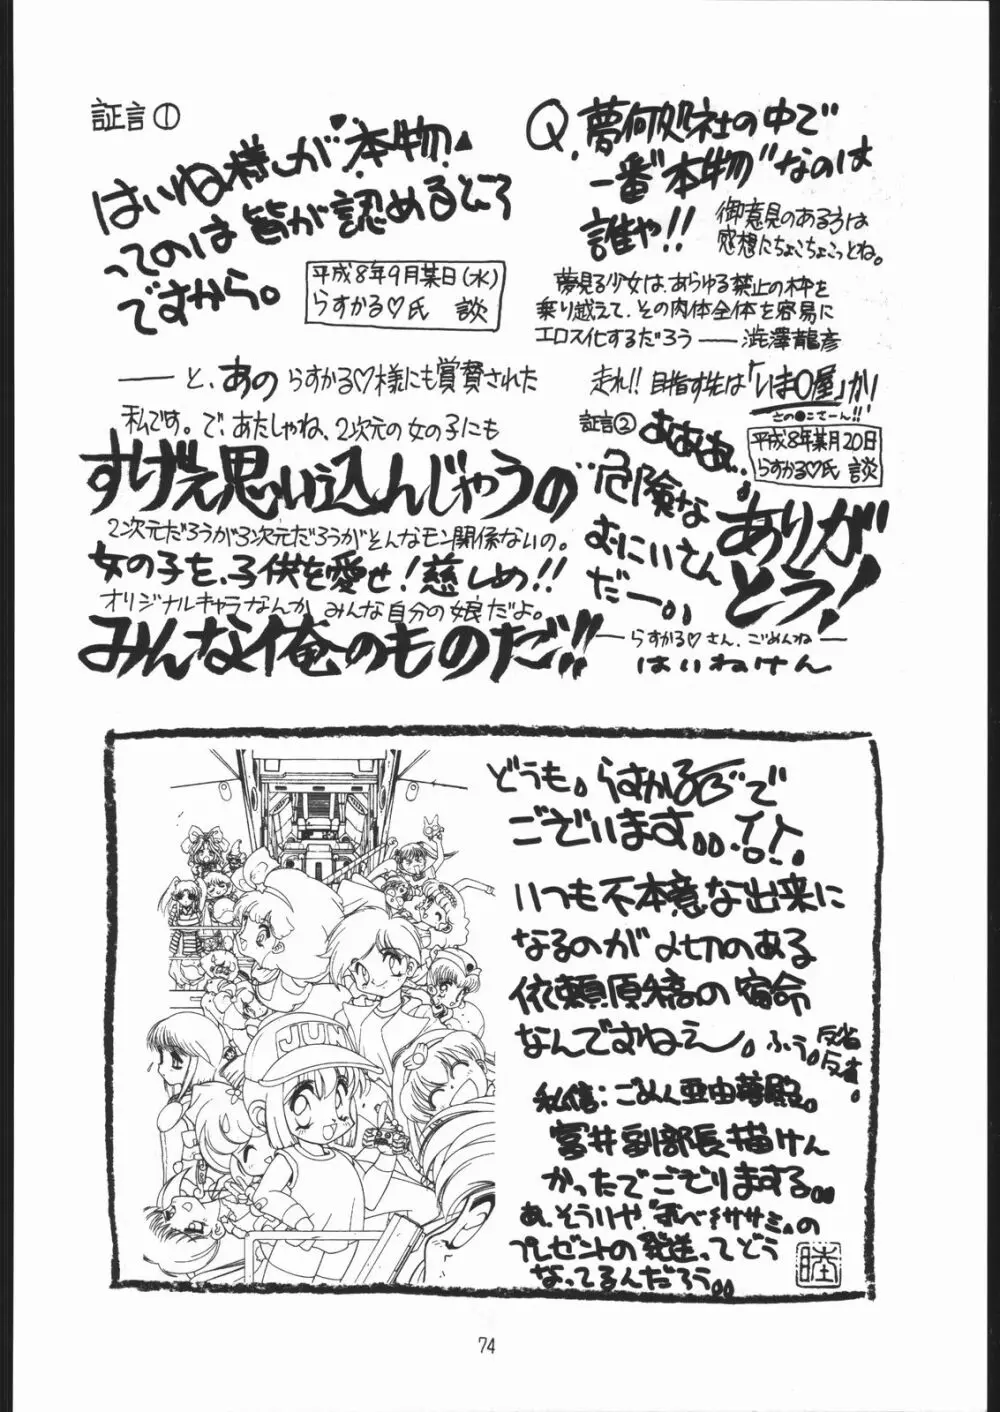 証言①
はいね様が“本物”
ってのは皆が認めるところ
ですから。
平成8年9月某日(水)
らすかる♡氏 談
Q.夢何処社の中で
一番“本物”なのは
誰や!!
御意見のある方は
感想にちょこちょこっとね。
夢見る少女は、あらゆる禁止の枠を
乗り越えて、その肉体全体を容易に
エロス化するだろう――澁澤龍彦
――と、あのらすかる♡様にも賞賛された
私です。で、あたしゃね、2次元の女の子にも
すげえ思い込んじゃうの
2次元だろうが3次元だろうがそんなモン関係ないの。
女の子を、子供を愛せ!慈しめ!!
オリジナルキャラなんか、みんな自分の娘だよ。
みんな俺のものだ!!
走れ!! 目指す先は「いま〇屋」か!
さの●こさーん!!
証言②
平成8年某月20日
らすかる♡氏 談
あああ、、
危険な
おにいさん
だー。。
ありが
とう!
―らすかる♡さん、ごめんね―
はいねけん
JUN
どうも。らすかるで
ございます。。
いつも不本意な出来に
なるのが〆切のある
依頼原稿の宿命
なんですねえ〜。ふう。
反省
反省。
私信:ごめん亜由夢殿。
宮井副部長描けん
かったでござりまする。。
あ、そういや“すべミササミ”の
プレゼントの発送ってどう
なってるんだろう。。
睦
74